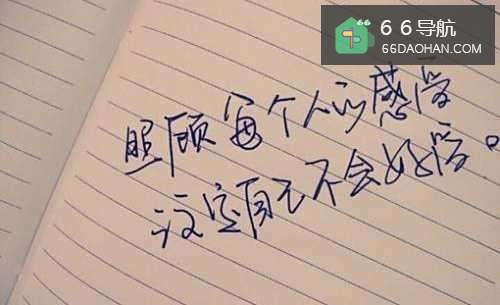 66导航
66DAOHAN.COM
照顾每个人的感受
注定自己不会好受。